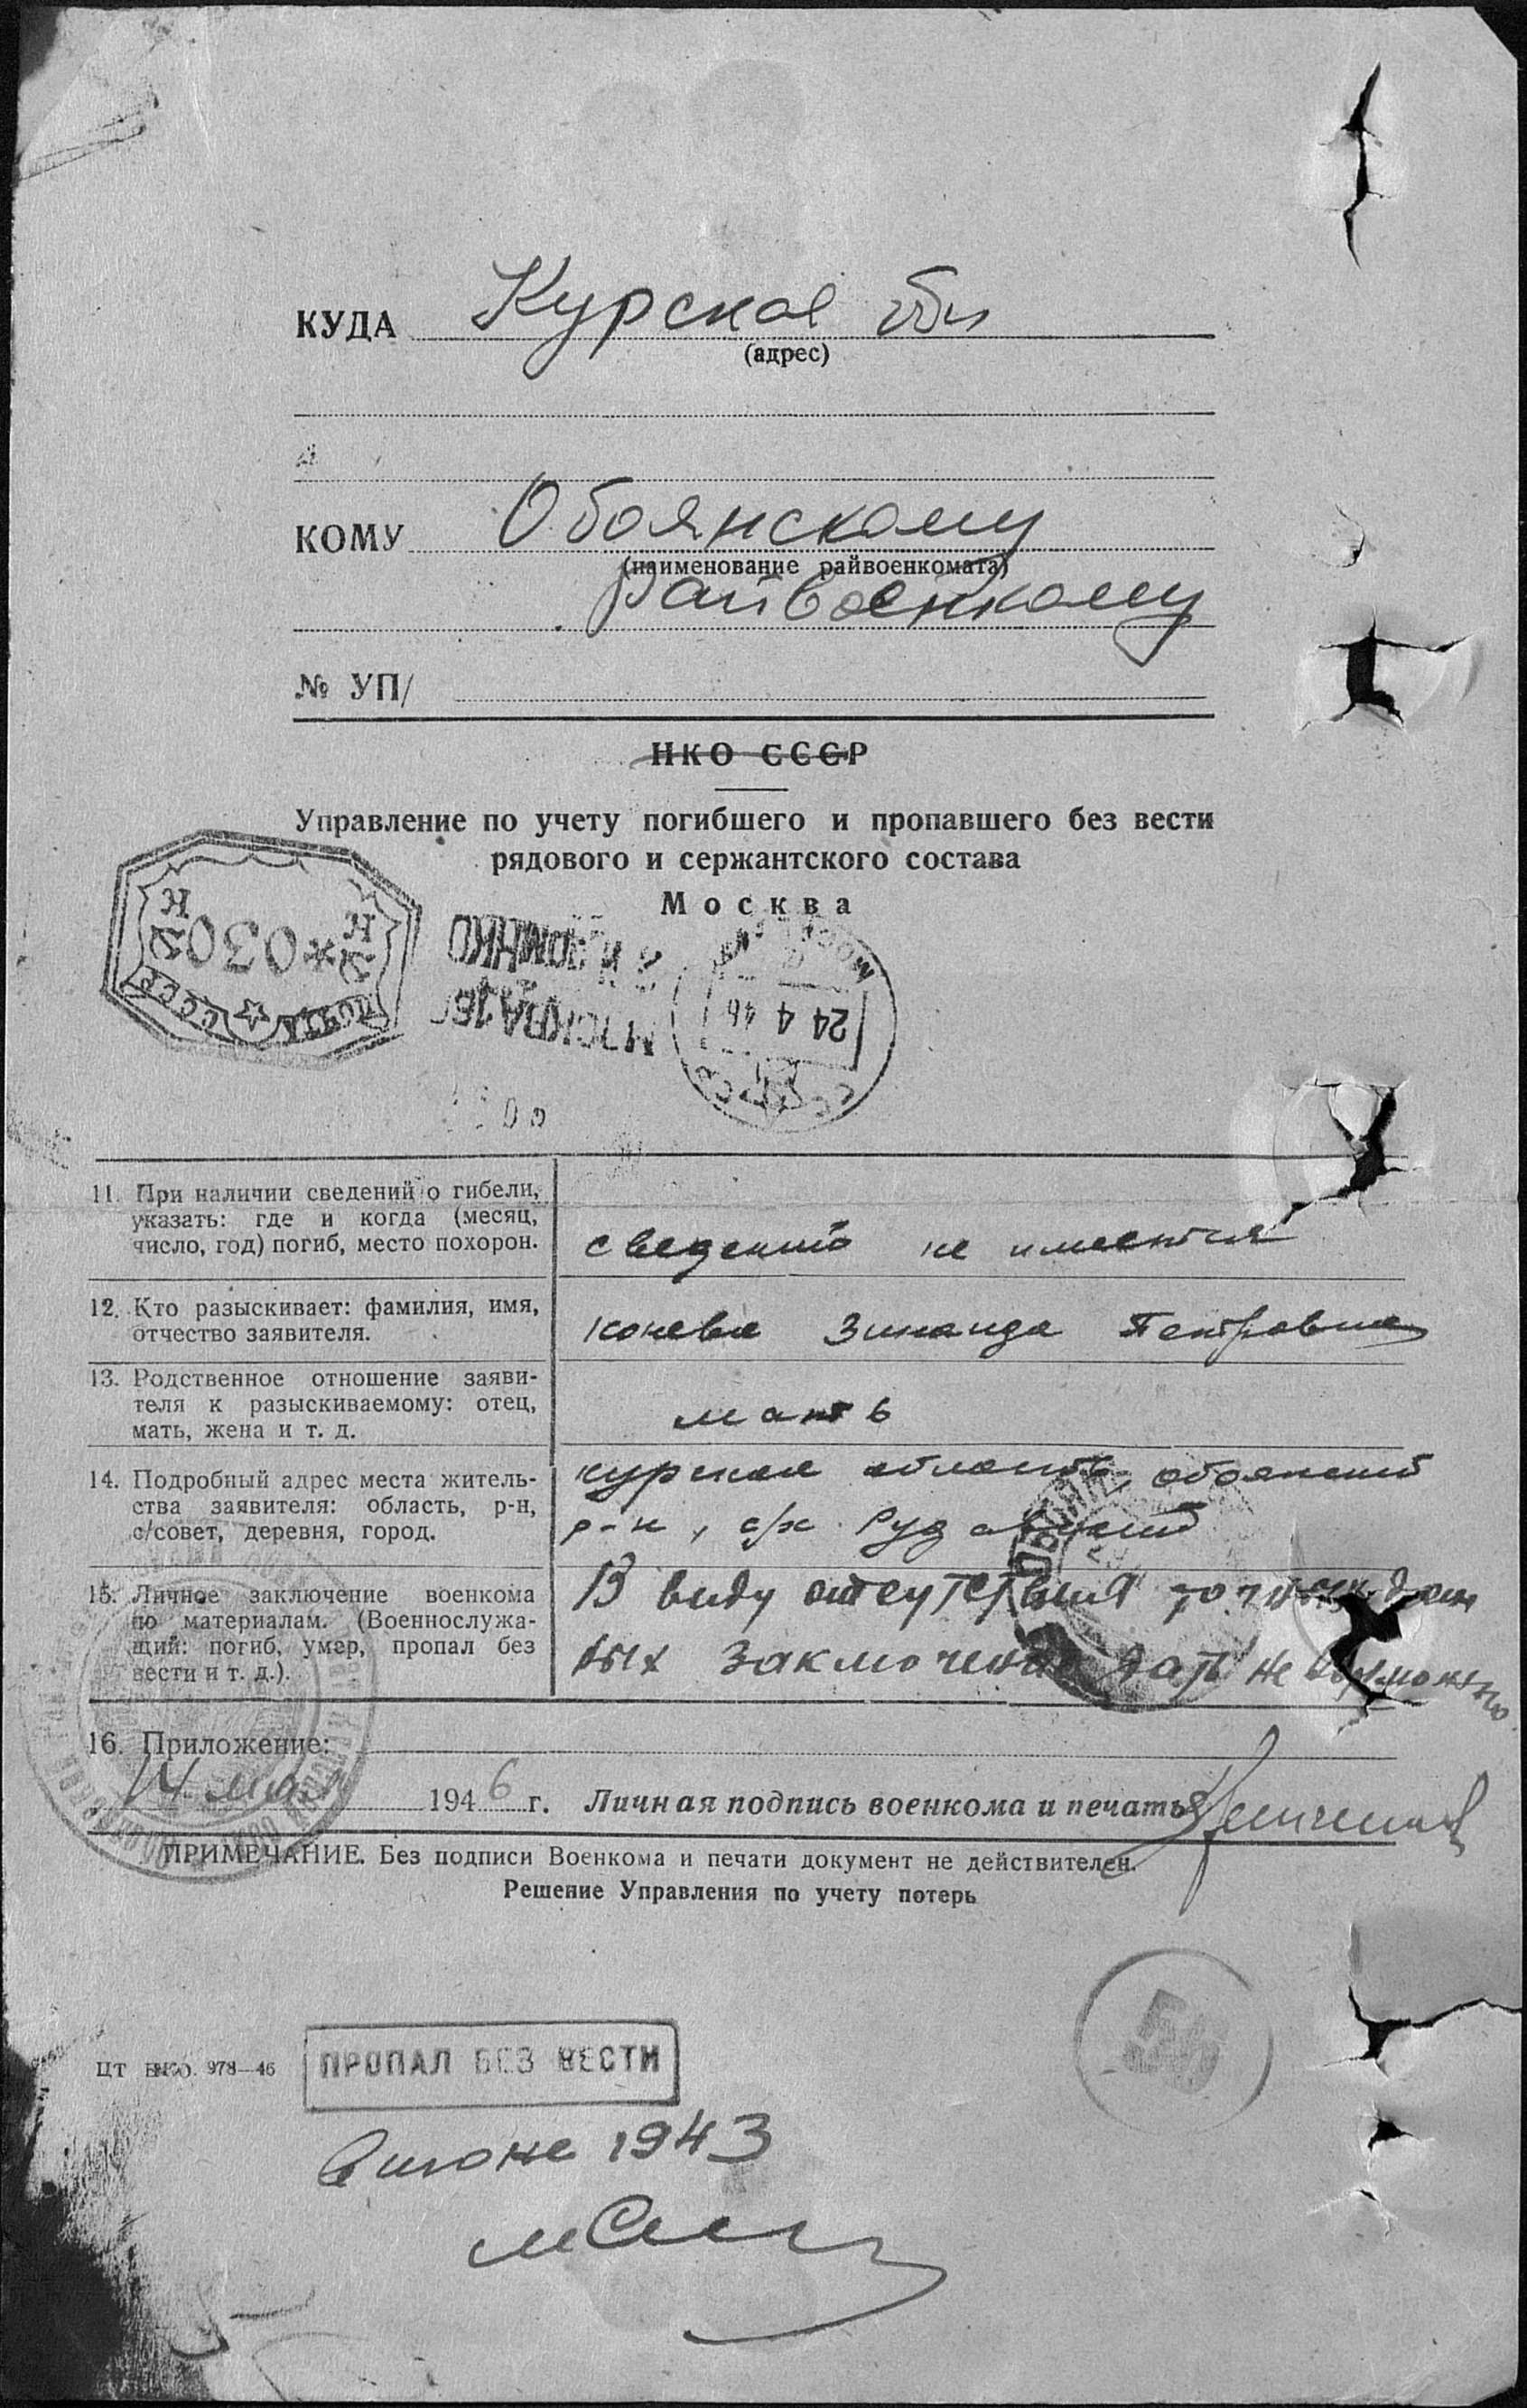 КУДА Курская обл
(адрес)
КОМУ Обоянскому
(наименование райвоенкомата)
райвоенкому
№ УП/
НКО СССР
Управление по учету погибшего и пропавшего без вести
рядового и сержантского состава
Москва
ПОЧТА СССР
030
МОСКВА
24 4 46
СССР
11. При наличии сведений о гибели,
указать: где и когда (месяц,
число, год) погиб, место похорон.
сведений не имеется
12. Кто разыскивает: фамилия, имя,
отчество заявителя.
конева Зинаида Петровна
13. Родственное отношение заяви-
теля к разыскиваемому: отец,
мать, жена и т. д.
мать
14. Подробный адрес места житель-
ства заявителя: область, р-н,
с/совет, деревня, город.
курская область, обоянский
р-н, с/х Рудавский
15. Личное заключение военкома
по материалам. (Военнослужа-
щий: погиб, умер, пропал без
вести и т. д.).
В виду отсутствия точных дан
ных заключение дать не возможно
16. Приложение:
14 мая 1946 г. Личная подпись военкома и печать
ПРИМЕЧАНИЕ. Без подписи Военкома и печати документ не действителен.
Решение Управления по учету потерь
ЦТ БНКО. 978—46
ПРОПАЛ БЕЗ ВЕСТИ
в июне 1943